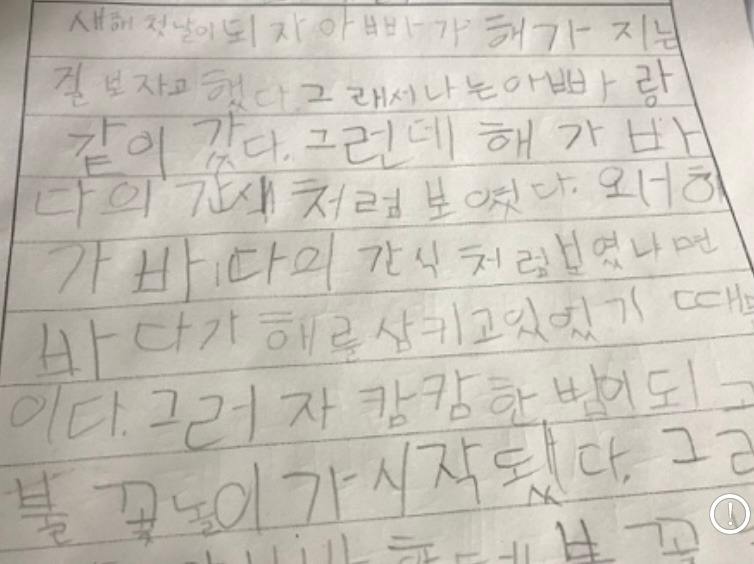 새해 첫날이 되자 아빠가 해가 지는
질 보자고 했다. 그래서 나는 아빠랑
같이 갔다. 그런데 해가 바
다의 간색처럼 보였다. 해
가 바다의 간식처럼 보였냐면
바다가 해를 삼키고 있었기 때문
이다. 그러자 캄캄한 밤이 되고
불꽃놀이가 시작됐다. 그
불꽃